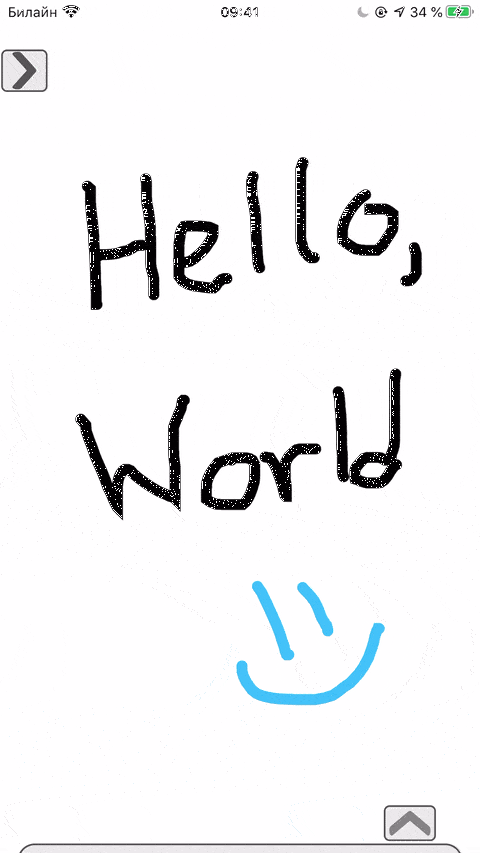 Билайн 09:41 34 %
Hello,
World